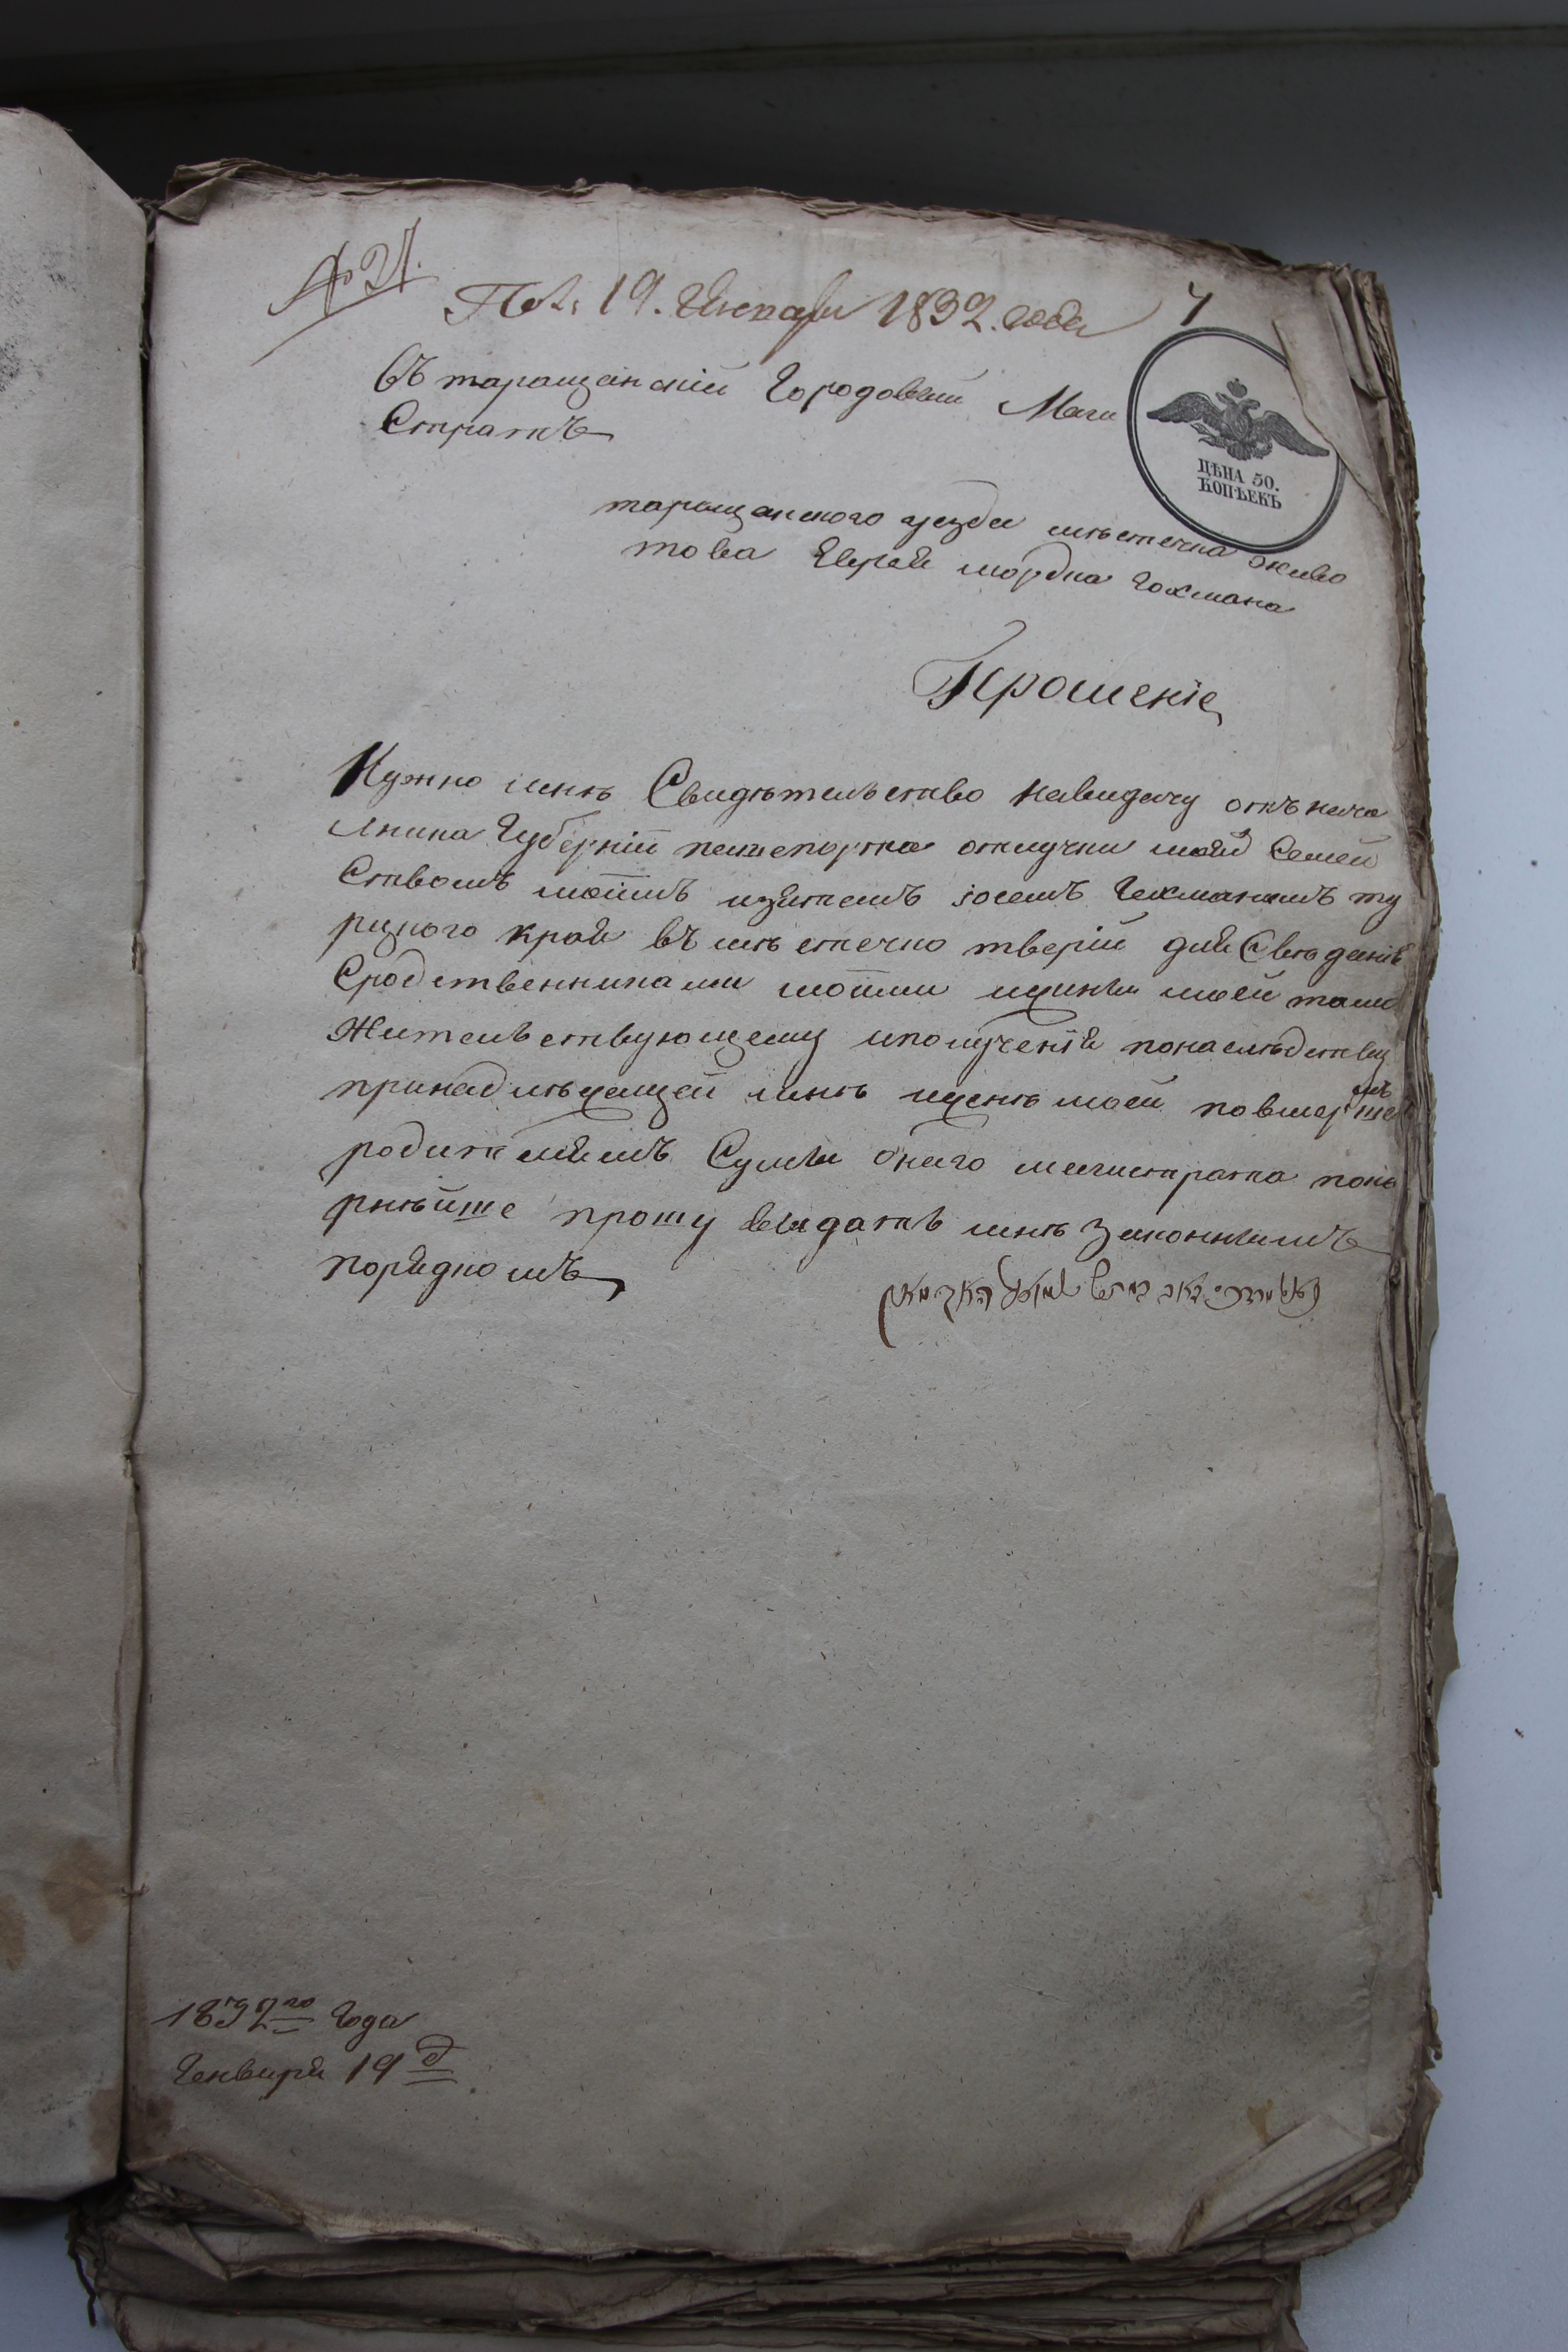 № 21.
Пол: 19. Января 1832. года
7
Въ таращанскій Городовый Маги
Стратъ
ЦѢНА 50.
КОПѢЕКЪ
таращанского уезда мѣстечка живо
това Еврея мордка Гохмана
Прошеніе
Нужно мнѣ Свидѣтельство навидачу отъ нача
лника Губерніи пашепорта отлучки моей Семей
Ствомъ моимъ изятемъ Гохманомъ ту
рецкого края въ мѣстечко тверіи для Свѣданія
Сродственниками моими ижены моей тамо
Жительствующему иполученія понаследству
принадлѣжащей мнѣ иженѣ моей повмершемъ
родителямъ Сумы онаго магистрата поко
рнѣйше прошу выдать мнѣ законнымъ
порядкомъ
1832го Года
Генваря 19 д